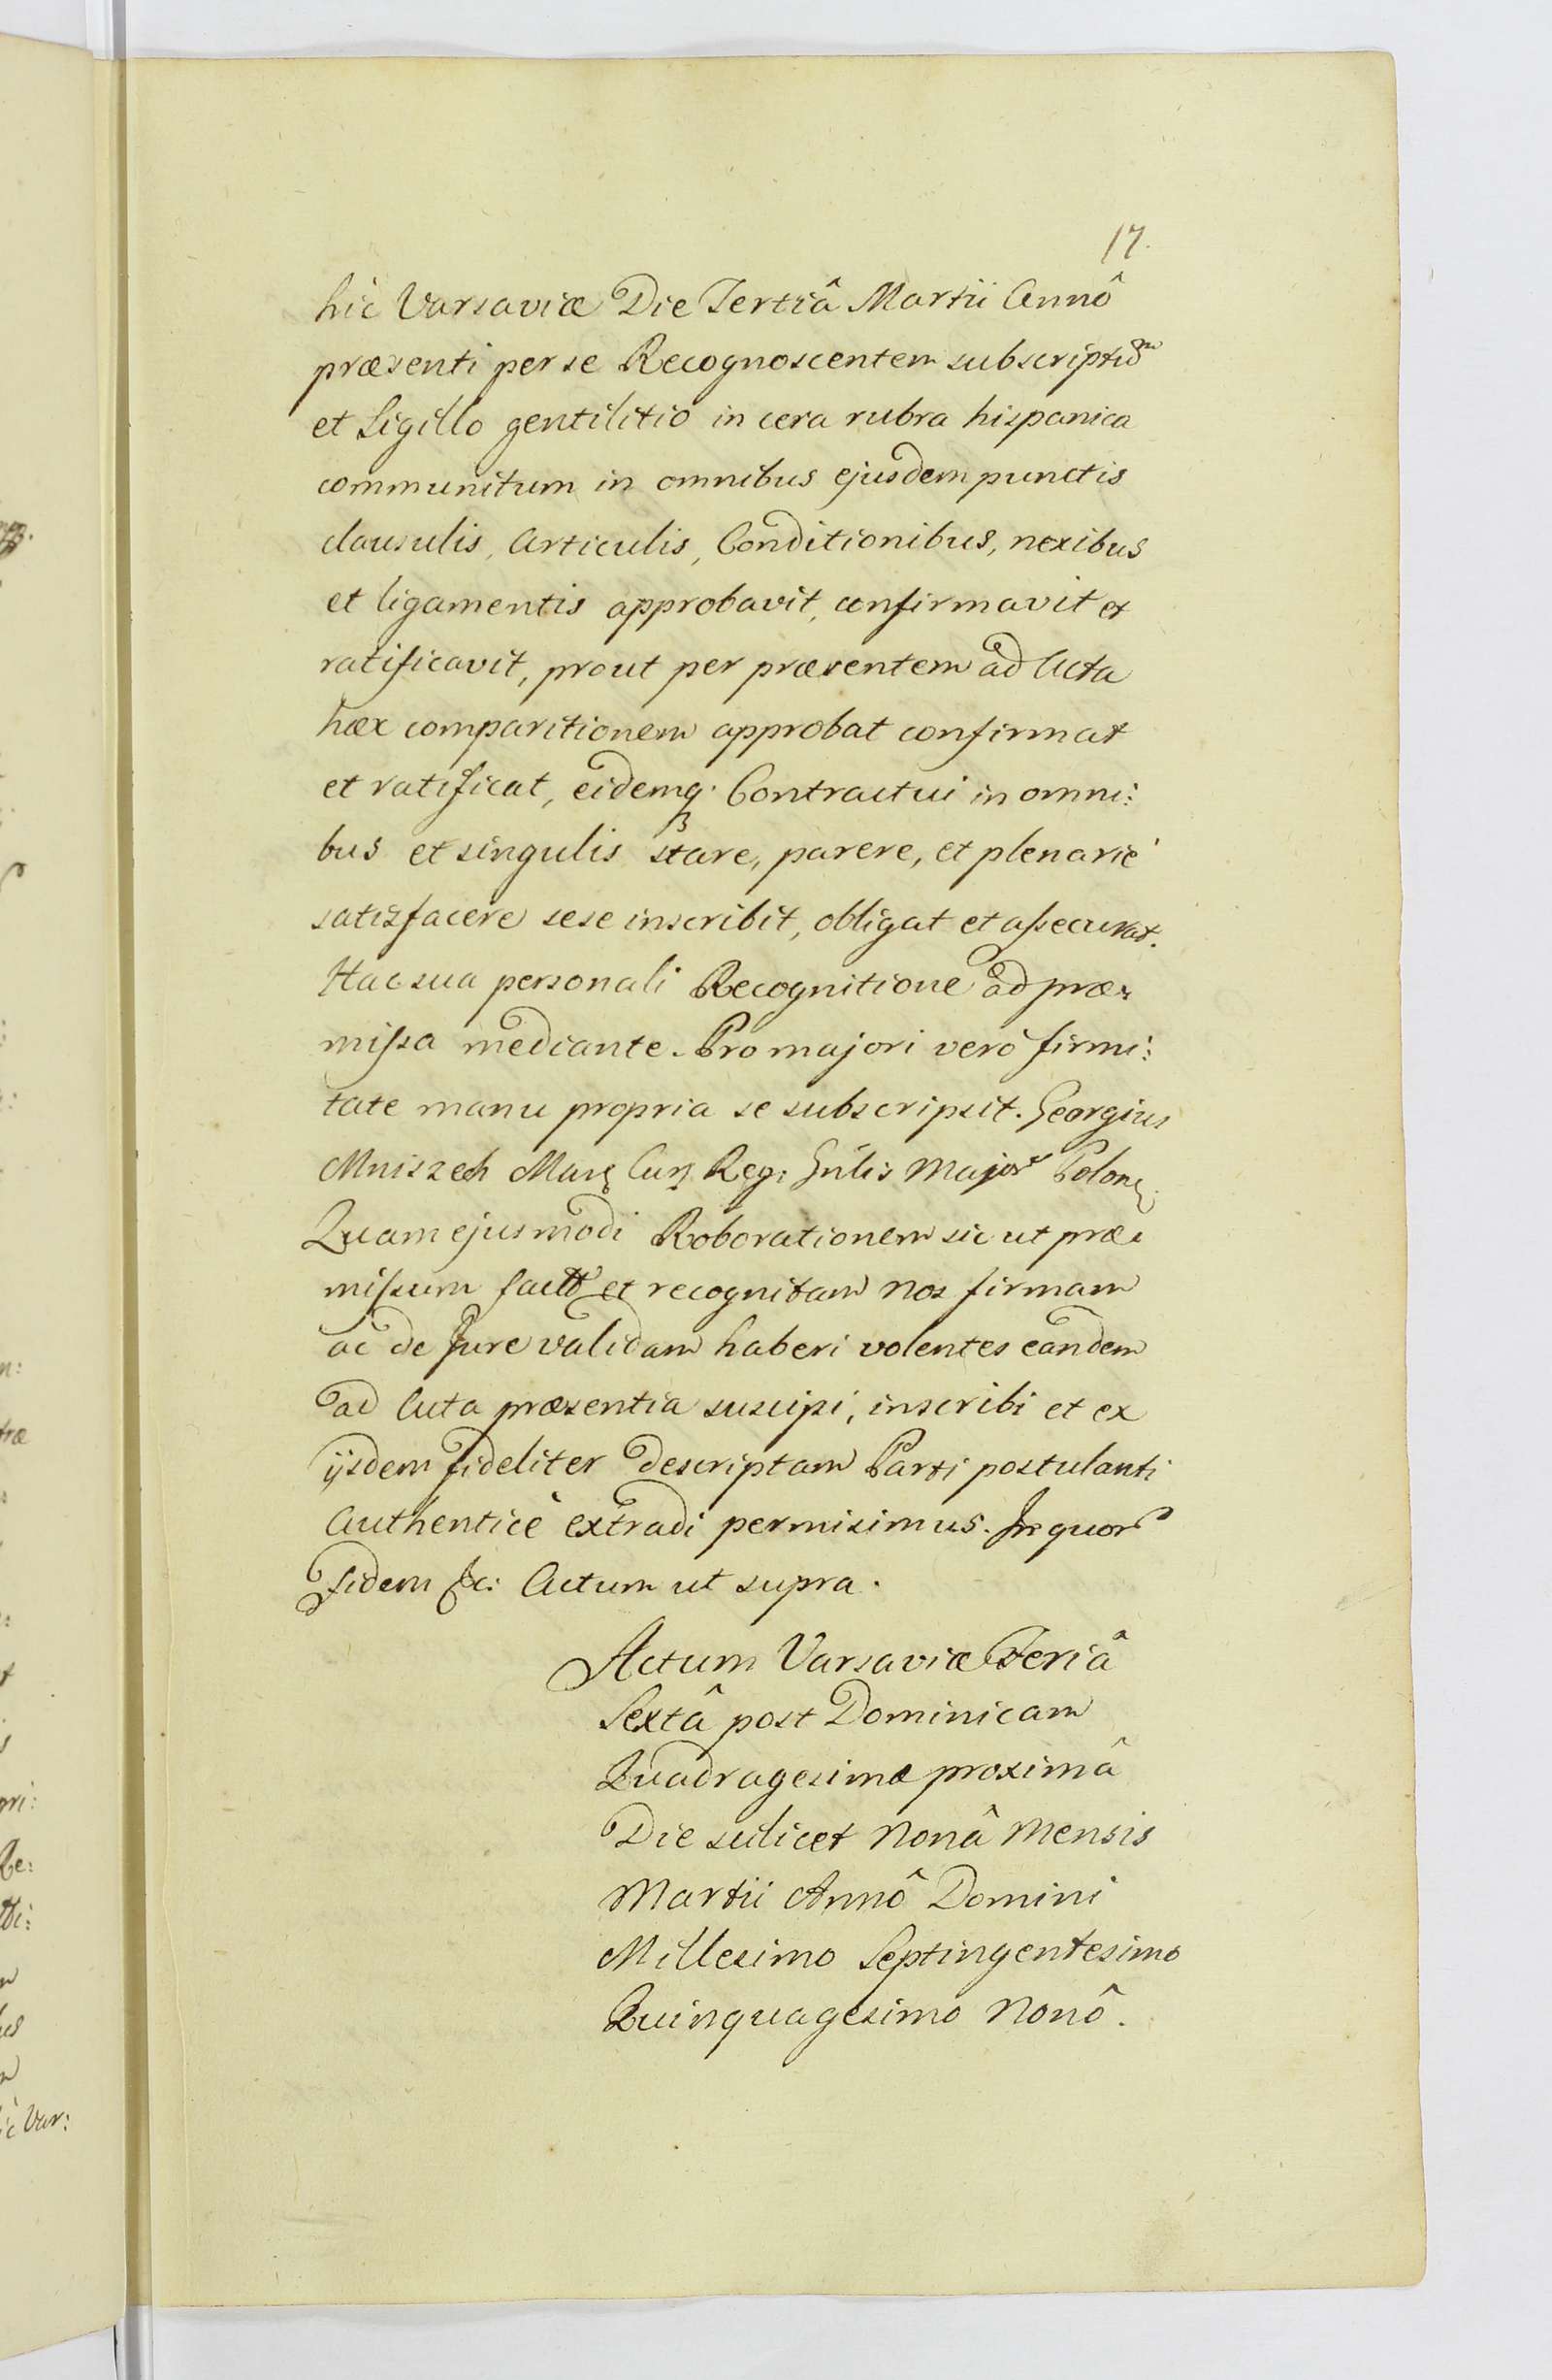 17.
hic Varsaviæ Die Tertiâ Martii Annô
præsenti per se Recognoscentem subscriptum
et Sigillo gentilitio in cera rubra hispanica
communitum in omnibus ejusdem punctis
clausulis, Articulis, Conditionibus, nexibus
et ligamentis approbavit, confirmavit et
ratificavit, prout per præsentem ad Acta
hæc comparitionem approbat confirmat
et ratificat, eidemq. Contractui in omni:
bus et singulis stare, parere, et plenarié
satisfacere sese inscribit, obligat et assecurat.
Hac sua personali Recognitione ad præ:
missa mediante. Pro majori verò firmi:
tate manu propria se subscripsit. Georgius
Mniszech Mar: Cur: Reg: Gnlis Major Polon:
Quam ejusmodi Roborationem sic ut præ:
missum factt et recognitam nos firmam
ac de Jure validam haberi volentes eandem
ad Acta præsentia suscipi, inscribi et ex
ijsdem fideliter descriptam Parti postulanti
Authenticè extradi permisimus. In quor
fidem &c: Actum ut supra.
Actum Varsaviæ Feriâ
Sextâ post Dominicam
Quadragesimæ proximâ
Die scilicet Nonâ Mensis
Martii Annô Domini
Millesimo Septingentesimo
Quinquagesimo Nonô.